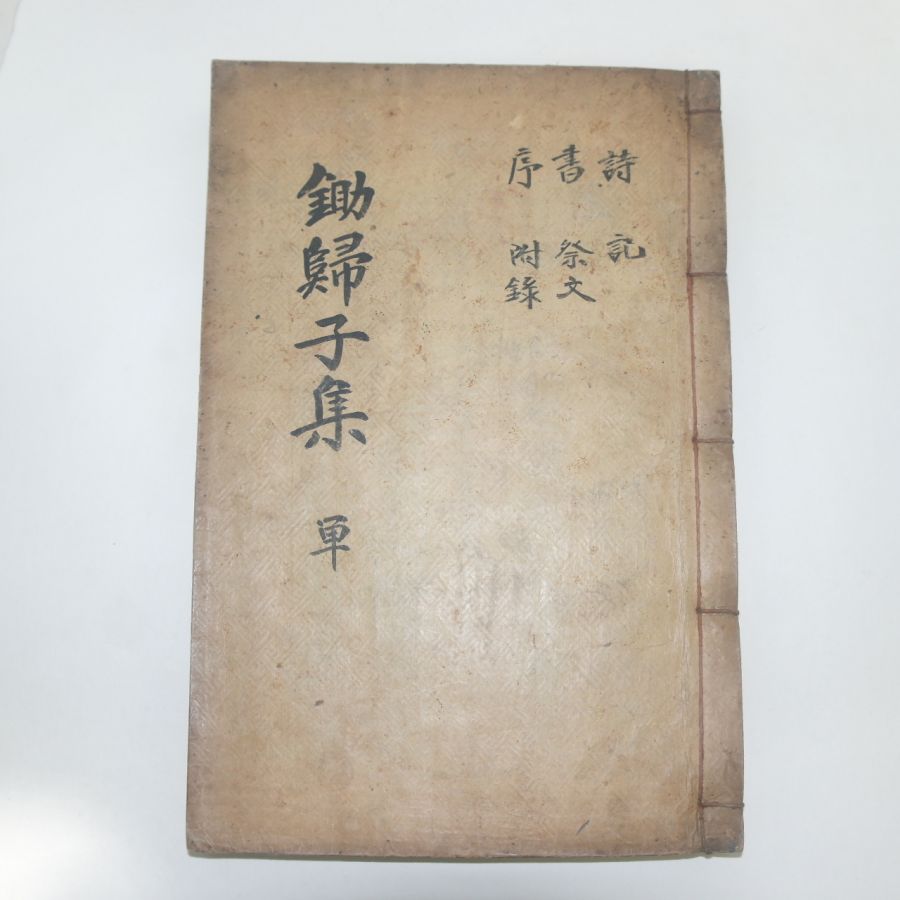 詩 記
書 祭文
序 附錄
鋤歸子集 單